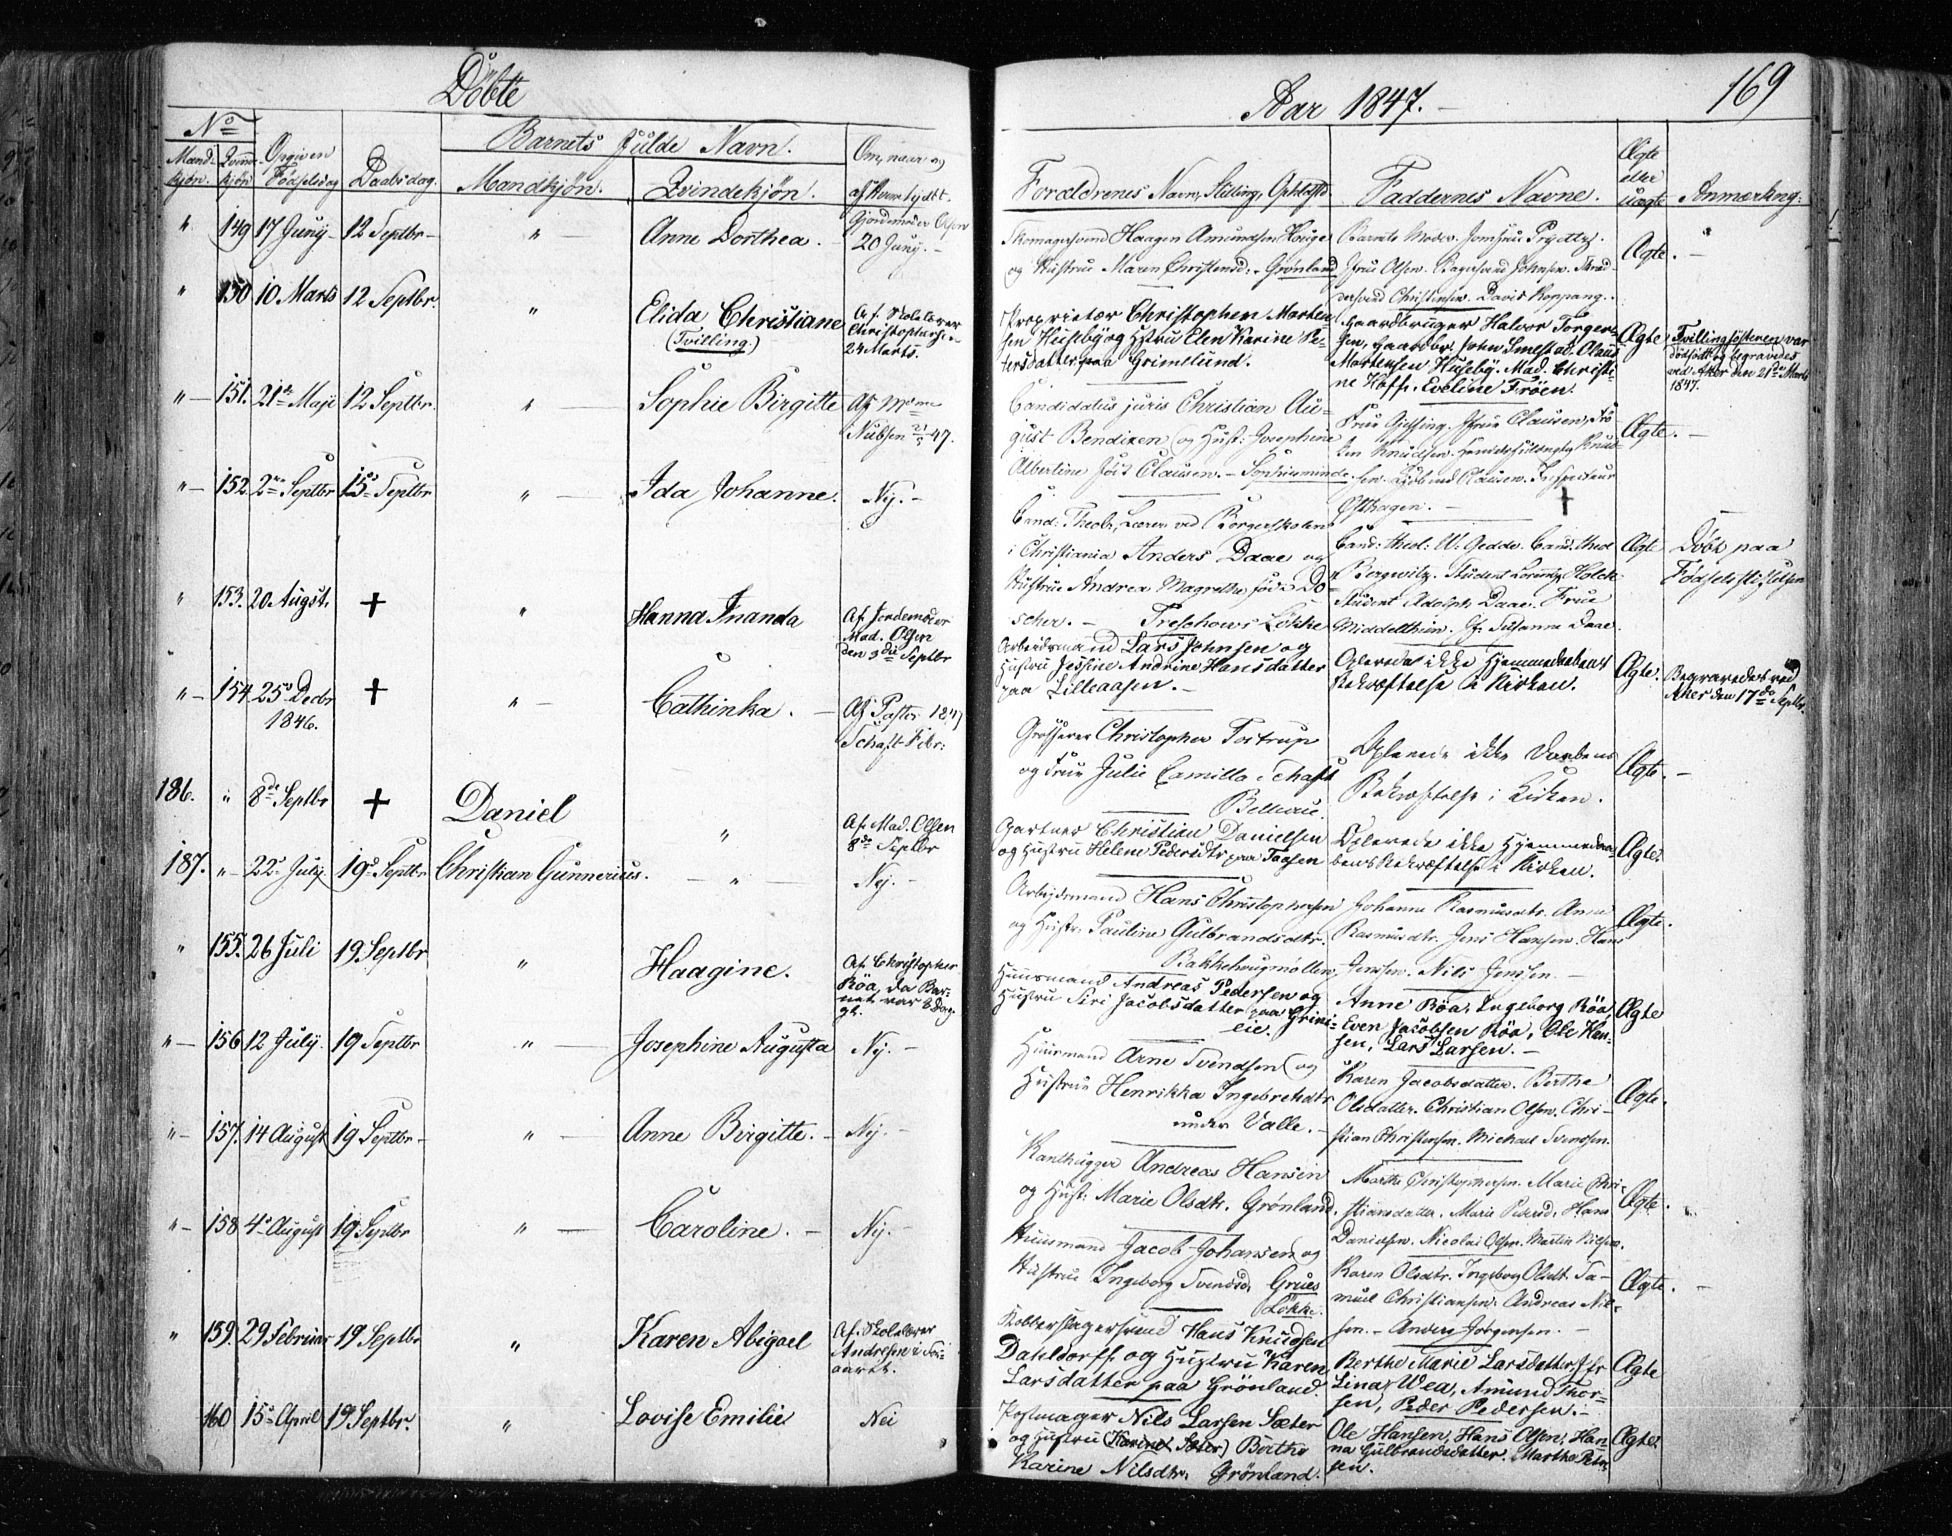 Döbte
Aar 1847.
169
No
Mandkjøn. Qvindekjön
Opgiven Fødselsdag
Daabsdag.
Barnets fulde Navn.
Mandkjøn. Qvindekjøn.
Om, naar og af hvem hjdbt.
Forældrenes Navn, Stilling, Opholdsted
Faddernes Navne.
Ægte eller uægte
Anmærkning:
" 149 17 Juny 12 Septbr " Anne Dorthea. Gjordemoder Olsen
20 Juny.
Skomagersvend Haagen Amundsen Houger
og Hustrue Maren Christensd. Grønland
Barnets Moder. Jomfrue Prydtz.
Jfrue Olsen. Bagersvend Johnsen. Skræd-
dersvend Christensen. David Koppang.
Ægte.
" 150 10 Marts 12 Septbr. " Elida Christiane
(Tvilling.)
Af Skolelærer
Christophersen
24 Marts.
Proprietær Christopher Morten-
sen Huseby og Hstru Elen Karine Pe-
tersdatter paa Grimelund.
Gaardbruger Halvor Torger-
sen, Gaardbr. John Smestad. Olaus
Mortensen Huseby. Mad. Christi-
ne Hoff. Eveline Fröen.
Ægte
Tvillingsösteren var
dødfödt og begravedes
ved Aker den 21de Marts
1847.
" 151. 21de Maji 12 Septbr. " Sophie Birgitte Af Mme
Nubsen 21/5 47.
Candidatus juris Christian Au-
gust Bendixen og Hust: Josephine
Albertine föd Clausen. Sophiesminde.
Ægte.
" 152. 2den Septbr 15de Septbr " Ida Johanne. Nej.
Cand: Theol:, Lærer ved Borgerskolen
i Christiania Anders Daae og
Hustrue Andrea Magrethe, föd Do-
scher. Treschows Løkke
Cand: theol: W. Gedde. Cand. theol
Bergwitz. Student Lorentz Holck.
Student Adolph Daae. Frue
Middelthun. Jf. Susanna Daae.
Ægte
Döbt paa
Fødselsstiftelsen
" 153. 20 August. + " Hanna Inanda Af Jordemoder
Mad. Olsen
den 3die Septbr
Arbeidsmand Lars Johnsen og
Hustru Jessine Andrine Hansdatter
paa Lilleaasen.
Oplevede ikke Hjemmedaabens
Bekræftelse i Kirken.
Ægte.
Begravedes ved
Aker den 17de Septbr.
" 154. 25de Decbr
1846. + " Cathinka. Af Pastor
Schaft Febr: 1847
Grosserer Christopher Tostrup
og Frue Julie Camilla Schaft
Bellevue.
Oplevede ikke Daabens
Bekræftelse i Kirken.
Ægte.
186. " 8de Septbr + Daniel " Af Mad. Olsen
8de Septbr
Gartner Christian Danielsen
og Hustru Helene Pedersdtr paa Taasen
Oplevede ikke Hjemmedaa-
bens Bekræftelse i Kirken.
Ægte.
187. " 22de July 19de Septbr Christian Gunnerius. " Nej.
Arbeidsmand Hans Christophersen
og Hustr: Pauline Gulbrandsdtr.
Bakkehougmøllen
Johanne Rasmusdtr. Anne
Rasmusdtr. Jens Hansen. Hans
Jenssen. Nils Jenssen.
Ægte.
" 155. 26 Juli 19. Septbr " Haagine. Af Christopher
Röa, da Bar-
net var 8 Dag.
gl.
Huusmand Andreas Pedersen og
Hustru Siri Jacobsdatter paa Grini-
eie.
Anne Röa, Ingeborg Röa,
Even Jacobsen Röa, Ole Han-
sen, Lars Larsen.
Ægte
" 156 12 July. 19 Septbr " Josephine Augusta Nej.
Huusmand Arne Svendsen og
Hustrue Henrikka Ingebretsdtr
under Valle.
Karen Jacobsdatter. Berthe
Olsdatter. Christian Olsen. Chri-
stian Christensen. Michael Svendsen.
Ægte.
" 157. 14 August 19 Septbr " Anne Birgitte. Nej.
Kanthugger Andreas Hansen
og Hust: Marie Olsdtr. Grønland.
Marthe Christophersen. Marie Chri-
stiansdatter. Marie Pedersd. Hans
Danielsen. Nicolai Olsen. Martin Nielsen.
Ægte.
" 158 4de August 19 Septbr " Caroline. Nej.
Huusmand Jacob Johansen og
Hustrue Ingeborg Svendsd. Grues
Løkke.
Karen Olsdtr. Ingeborg Olsdt. Sa-
muel Christiansen. Andreas Nil-
sen. Anders Jørgensen.
Ægte.
" 159. 29 Februar 19 Septbr " Karen Abigael Af Skolelærer
Andresen i Sör-
aaret.
Kobberslagersvend Hans Knudsen
Dahldorff og Hustru Karen
Larsdatter paa Grönland
Berthe Marie Larsdatter, Jfr
Lina Wea, Amund Thor-
sen, Peder Pedersen.
Ægte
160 15de April 19 Septbr. " Lovise Emilie Nei
Postmager Nils Larsen Sæter
og Hustru (Karine Sæter) Berthe
Karine Nilsdtr. Grönland.
Ole Hansen, Hans Olsen, Han-
na Gulbrandsdatter, Marthe Peter-
sen.
Ægte.